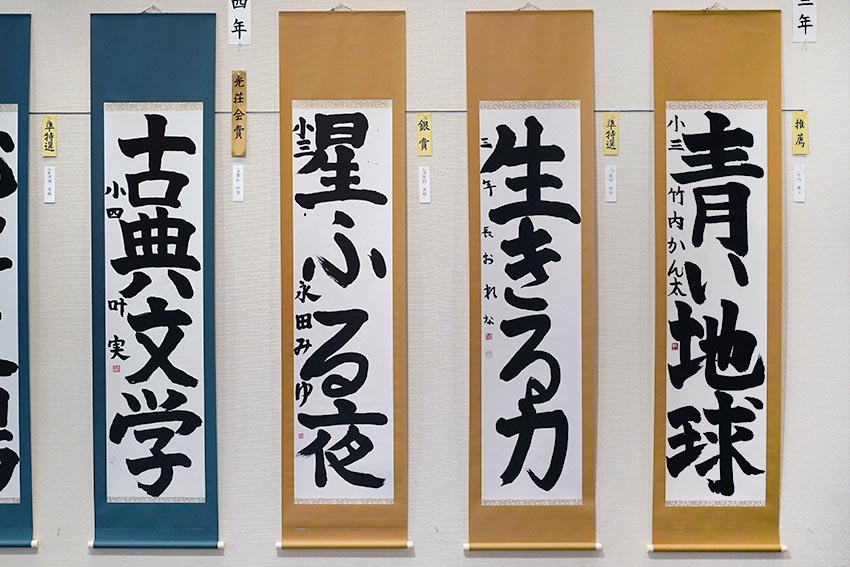 三年
推薦
青い地球
小三 竹内かん太
準特選
生きる力
三年 長おれな
銀賞
星ふる夜
小三 永田みゆ
四年
光荘会賞
古典文学
小四 叶実
準特選